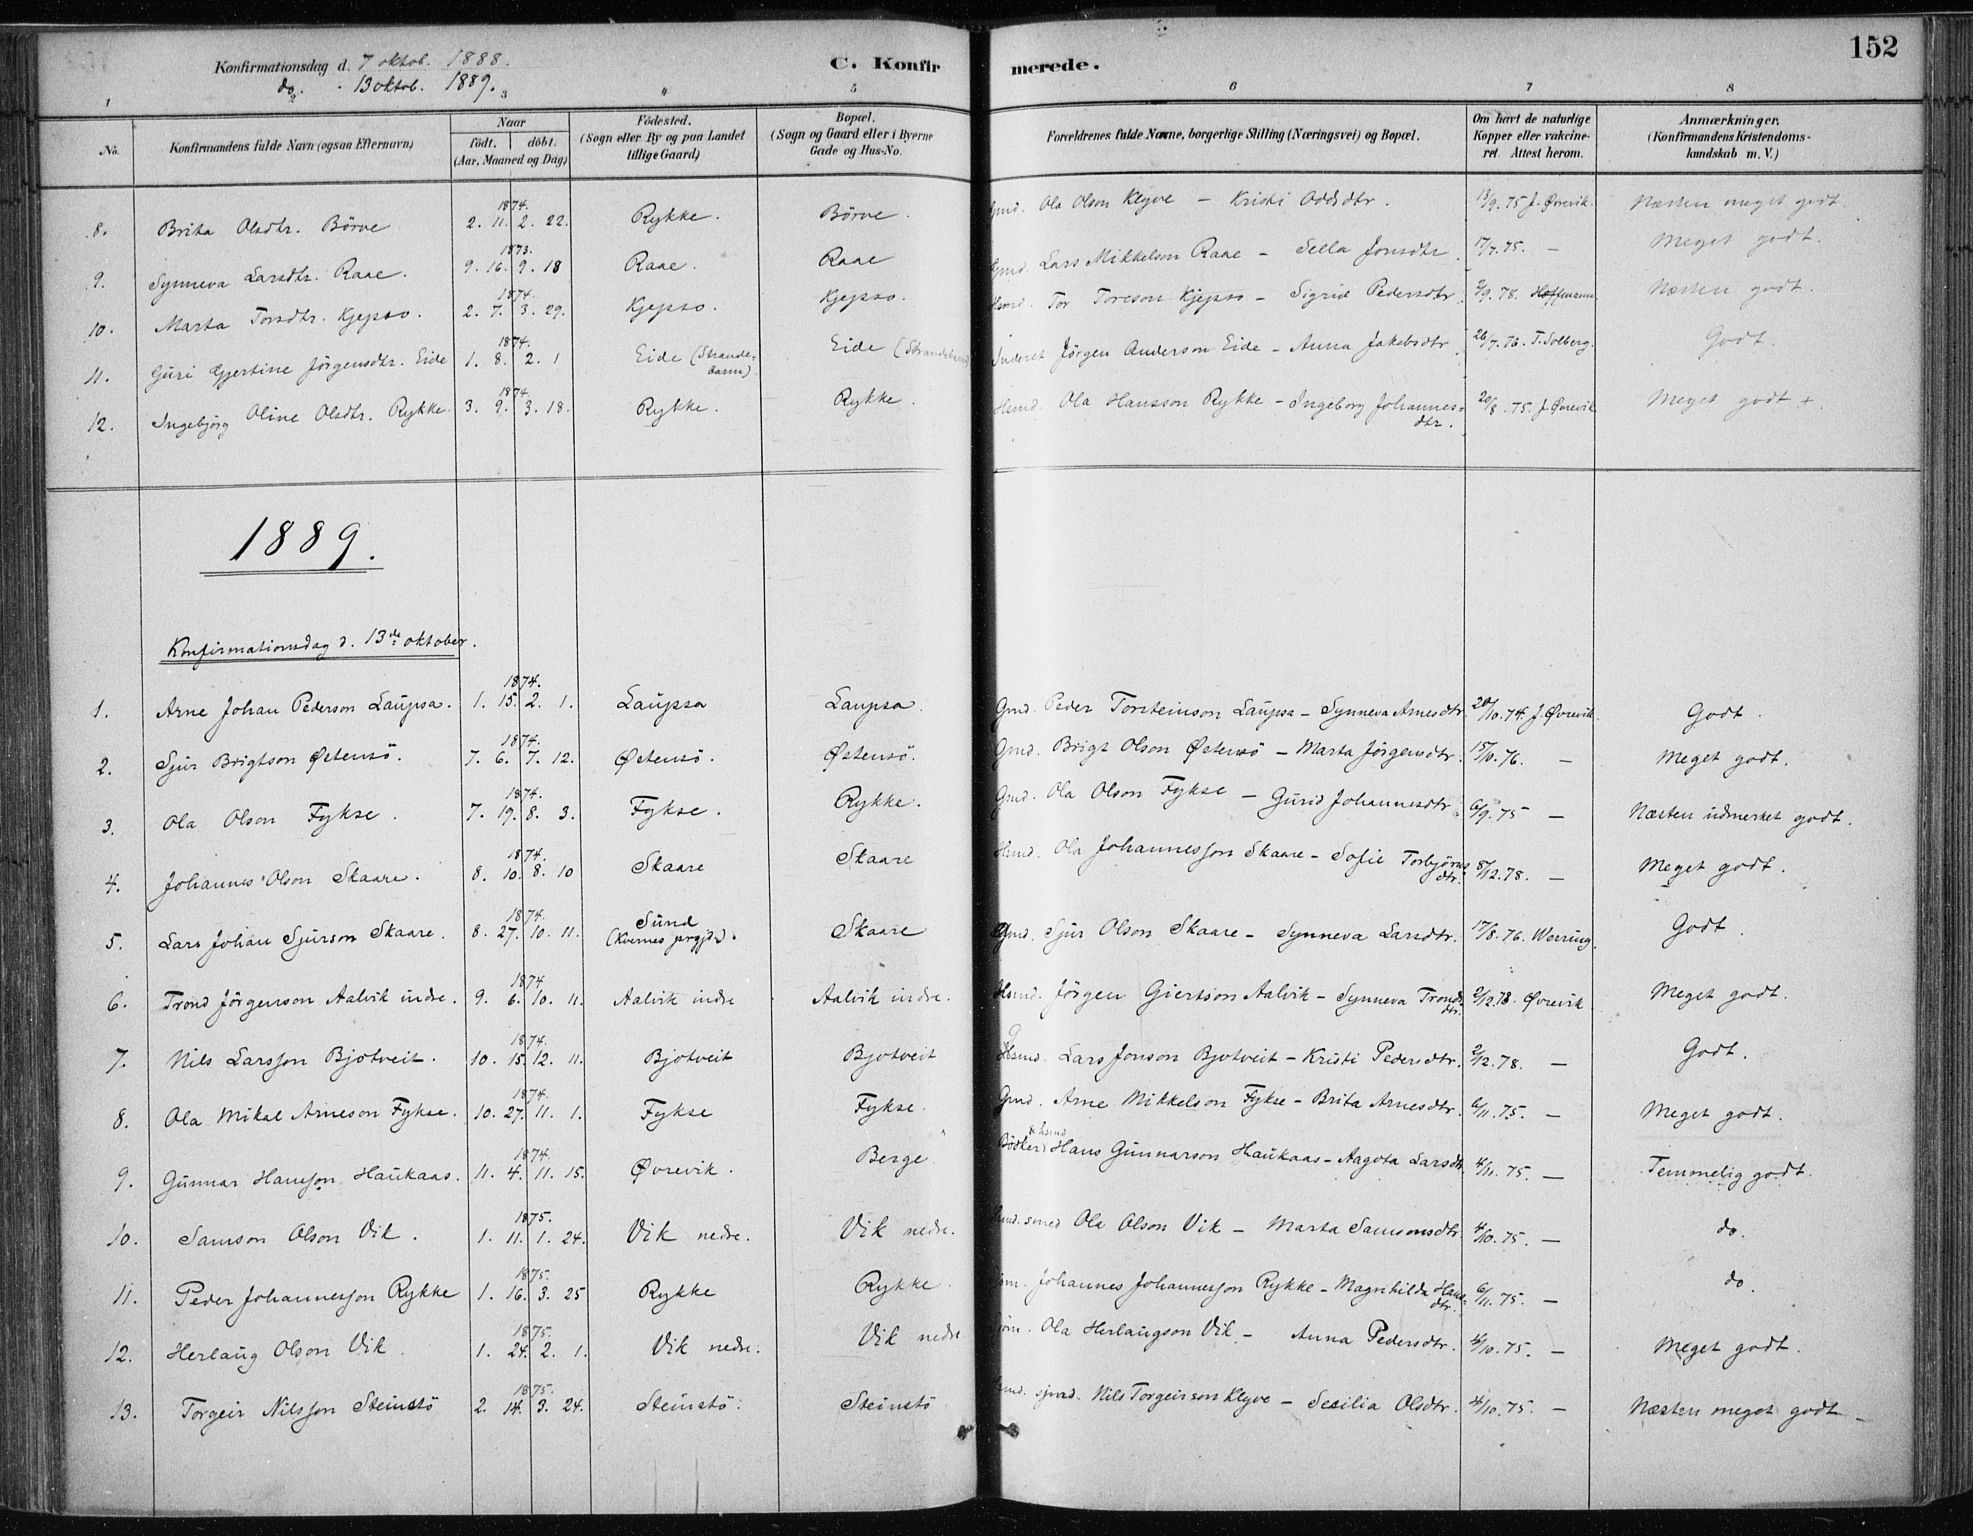 152
Konfirmationsdag d. 7 oktob. 1888.
do. - 13 oktob. 1889.
C. Konfirmerede.
1 3 4 5 6 7 8
No. Konfirmandens fulde Navn (ogsaa Efternavn) Naar födt. döbt. (Aar, Maaned og Dag) Födested. (Sogn eller By og paa Landet tillige Gaard) Bopæl. (Sogn og Gaard eller i Byerne Gade og Hus-No. Forældrenes fulde Navne, borgerlige Stilling (Næringsvei) og Bopæl. Om havt de naturlige Kopper eller vakcineret. Attest herom. Anmærkninger. (Konfirmandens Kristendomskundskab m. V.)
8. Brita Olsdtr. Börve 1874. 2. 11. 2. 22. Rykke. Börve. Gmd. Ola Olson Klyve - Kristi Oddsdtr. 13/9. 75 J. Øvrevik. Næsten meget godt.
9. Synneva Larsdtr. Raae. 1873. 9. 16. 9. 18 Raae. Raae Gmd. Lars Mikkelson Raae - Sella Jonsdtr. 17/7. 75. - Meget godt.
10. Marta Torsdtr. Kjepso. 1874. 2. 7. 3. 29. Kjepso. Kjepso. Hsmd. Tor Toreson Kjepso - Sigrid Pedersdtr. 2/9. 78. Hoffmann Næsten godt.
11. Guri Gjertine Jörgensdtr. Eide 1874. 1. 8. 2. 1 Eide (Strandebarm) Eide (Strandebarm) Inderst Jörgen Anderson Eide - Anna Jakobsdtr. 26/7. 76. T. Solberg. Godt
12. Ingebjörg Oline Olsdtr. Rykke. 1874. 3. 9. 3. 18. Rykke. Rykke. Hsmd. Ola Hansson Rykke - Ingeborg Johannesdtr. 20/8. 75. J. Øvrevik Meget godt +.
1889.
Konfirmationsdag d. 13de oktober.
1. Arne Johan Pederson Laupsa. 1874. 1. 15. 2. 1. Laupsa Laupsa. Gmd. Peder Torsteinson Laupsa - Synneva Arnesdtr. 20/10. 74. J. Øvrevik. Godt.
2. Sjur Brigtson Østensö. 1874. 7. 6. 7. 12. Østensö. Østensö. Gmd. Brigt Olson Østensö - Marta Jörgensdtr. 15/10. 76. - Meget godt.
3. Ola Olson Fykse. 1874. 7. 19. 8. 3. Fykse. Rykke. Gmd. Ola Olson Fykse - Gurid Johannesdtr. 6/9. 75 - Næsten udmerket godt.
4. Johannes Olson Skaare. 1874. 8. 10. 8. 10 Skaare Skaare Hsmd. Ola Johannesson Skaare - Sofie Torbjörnsdtr. 8/12. 78. - Meget godt.
5. Lars Johan Sjurson Skaare. 1874. 8. 27. 10. 11. Sund (Kvernes prgjd.). Skaare Gmd. Sjur Olson Skaare - Synneva Larsdtr. 17/8. 76. Werring. Godt.
6. Trond Jörgenson Aalvik indre. 1874 9. 6. 10. 11. Aalvik indre Aalvik indre. Hsmd. Jörgen Giertson Aalvik - Synneva Trondsdtr. 2/12. 78. Øvrevik Meget godt.
7. Nils Larsson Bjotveit. 1874. 10. 15. 12. 11. Bjotveit Bjotveit Lars Jonson Bjotveit - Kristi Pedersdtr. 2/12. 78. - Godt.
8. Ola Mikal Arneson Fykse. 1874. 10. 27. 11. 1. Fykse Fykse. Gmd. Arne Mikkelson Fykse - Brita Arnesdtr. 6/11. 75. - Meget godt.
9. Gunnar Hansson Haukaas. 1874. 11. 4. 11. 15. Øvrevik. Berge Bödker & hsmd Hans Gunnarson Haukaas - Aagota Larsdtr. 4/11. 75. - Temmelig godt.
10. Samson Olson Vik. 1875. 1. 11. 1. 24. Vik nedre. Vik nedre. smed Ola Olson Vik - Marta Samsonsdtr. 4/10. 75. - do.
11. Peder Johannesson Rykke 1875. 1. 16. 3. 25 Rykke Rykke. Johannes Johannesson Rykke - Magnhilda Hansdtr. 6/11. 75. - do.
12. Herlaug Olson Vik. 1875. 1. 24. 2. 1. Vik nedre. Vik nedre Ola Herlaugson Vik. - Anna Pedersdtr. 4/10. 75. - Meget godt.
13. Torgeir Nilsson Steinstö 1875. 2. 14. 3. 24. Steinstö. Steinstö Nils Torgeirson Klyve - Sesilia Olsdtr. 4/10. 75. - Næsten meget godt -